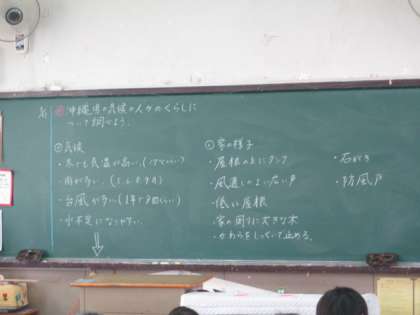 沖縄県の気候の人々のくらしに
ついて調べよう。
気候
・冬でも気温が高い。
・雨が多い。(5.6.8.9月)
・台風が多い(1年で8回くらい)
・水不足になりやすい。
家の様子
・屋根の上にタンク
・風通しのよい
・低い屋根
・家の周りに大きな木
・かわらをしっくいで止める。
・石がき
・防風戸